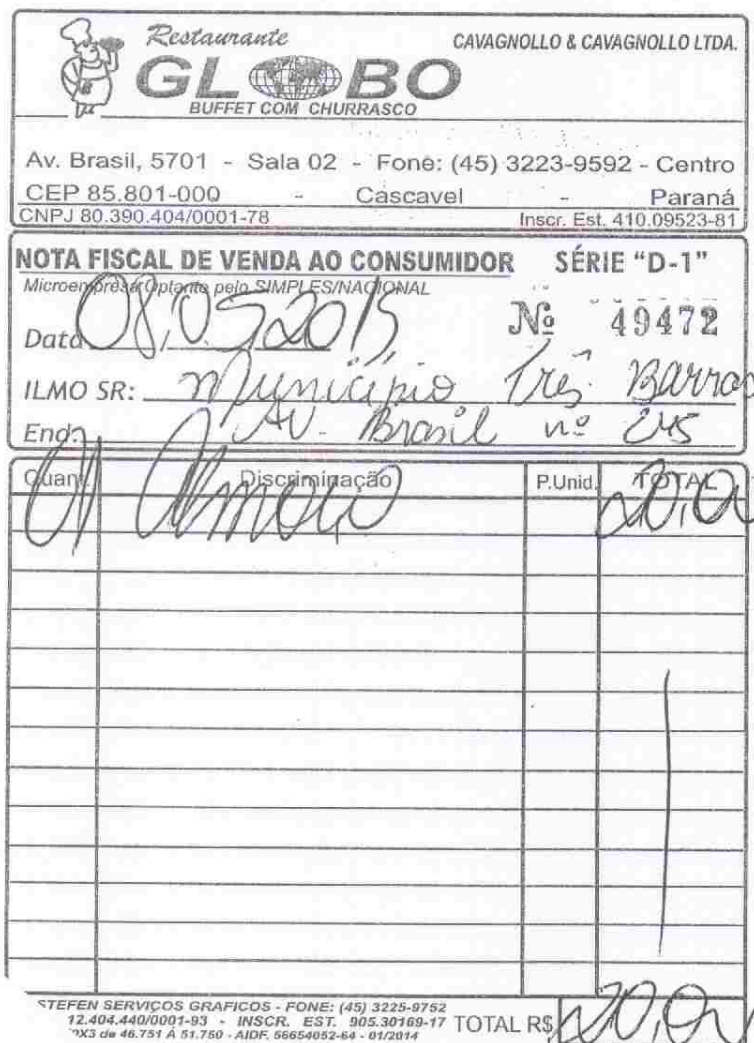 Restaurante
CAVAGNOLLO & CAVAGNOLLO LTDA.
GLOBO
BUFFET COM CHURRASCO
Av. Brasil, 5701 - Sala 02 - Fone: (45) 3223-9592 - Centro
CEP 85.801-000 - Cascavel - Paraná
CNPJ 80.390.404/0001-78 Inscr. Est. 410.09523-81
NOTA FISCAL DE VENDA AO CONSUMIDOR SÉRIE "D-1"
Microempresa Optante pelo SIMPLES/NACIONAL
Data 08/05/2015 Nº 49472
ILMO SR: Município Três Barras
End.: AV. Brasil nº 245
Quant. Discriminação P.Unid. TOTAL
01 Almoço 20,00
STEFEN SERVIÇOS GRAFICOS - FONE: (45) 3225-9752
12.404.440/0001-93 - INSCR. EST. 905.30169-17
X3 de 46.751 À 51.750 - AIDF. 56654052-64 - 01/2014
TOTAL R$ 20,00